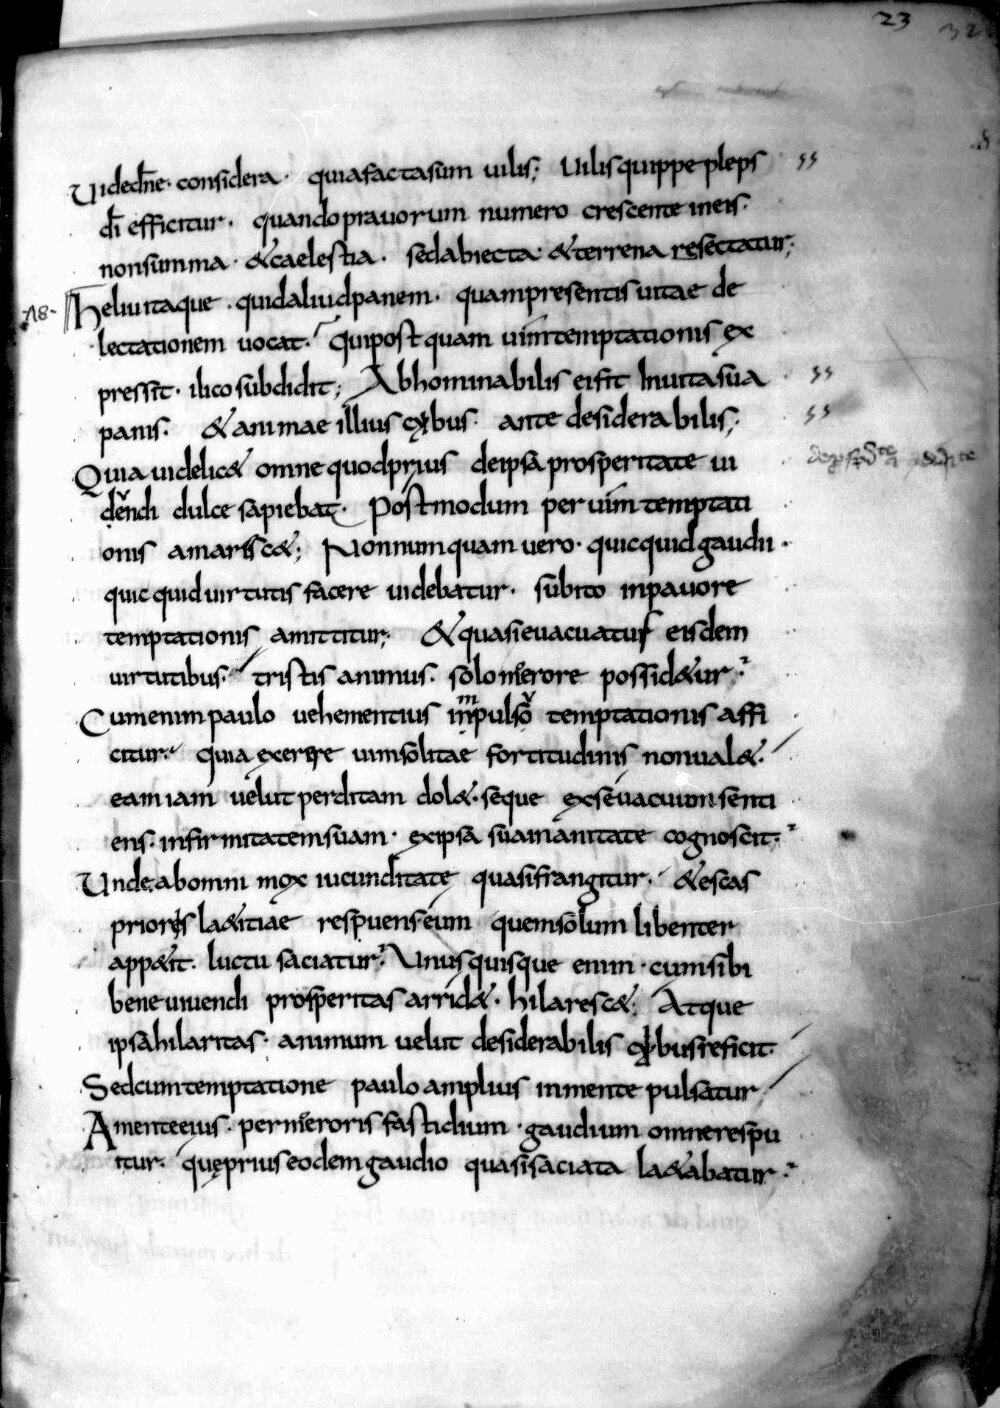 23 32
Uide dn̄e · considera · quia facta sum uilis; Uilis quippe pleps
dī efficitur · quando prauorum numero crescente in eis ·
non summa · & caelestia · sed abiecta · & terrena resectatur;
18 Heliu itaque · quid aliud panem · quam presentis uitae de
lectationem uocat · Qui postquam uim temptationis ex
pressit · ilico subdidit; Abhominabilis ei fit In uita sua
panis · & animae illius cybus · ante desiderabilis;
Quia uidelic& omne quod prius de ipsa prosperitate ui
dendi dulce sapiebat · Postmodum per uim temptati
onis amarisc&; Nonnumquam uero · quicquid gaudii ·
quicquid uirtutis facere uidebatur · subito in pauore
temptationis amittitur; & quasi euacuatus eisdem
uirtutibus · tristis animus · solo merore possid&ur ·
Cum enim paulo uehementius impulso temptationis affi
citur · quia exerere uim solitae fortitudinis non ual& ·
eam iam uelut perditam dol& · seque ex se uacuum senti
ens · infirmitatem suam · ex ipsa sua inanitate cognoscit ·
Unde ab omni mox iucunditate quasi frangitur · & escas
priores la&itiae respuens eum quem solum libenter
app&it · luctu saciatur · Unusquisque enim · cum sibi
bene uiuendi prosperitas arrid& · hilaresc& · Atque
ipsa hilaritas · animum uelut desiderabilis cybus reficit ·
Sed cum temptatione paulo amplius in mente pulsatur
A mente eius · per meroris fastidium · gaudium omne respu
itur · quę prius eodem gaudio quasi saciata la&abatur ·